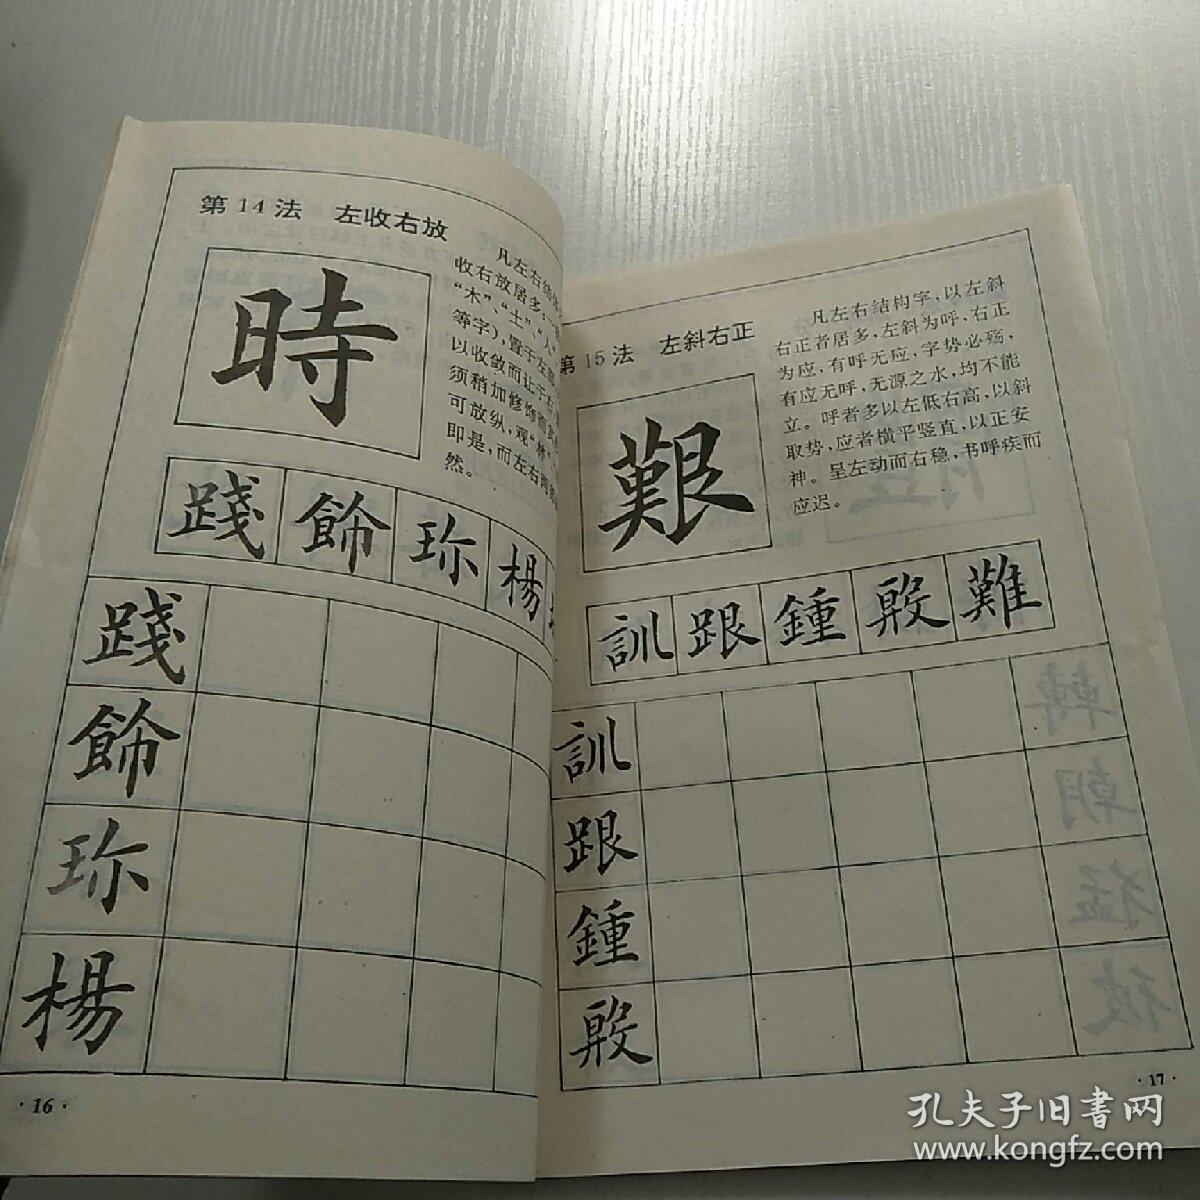 第14法 左收右放
時
凡左右结
收右放居多,
“木”、“土”、“人”
等字),置于左
以收敛而让于右
须稍加修饰
可放纵,观“林”
即是,而左右
然。
踐 飾 珎 楊
踐
飾
珎
楊
·16·
第15法 左斜右正
艱
凡左右结构字,以左斜
右正者居多,左斜为呼,右正
为应,有呼无应,字势必殇,
有应无呼,无源之水,均不能
立。呼者多以左低右高,以斜
取势,应者横平竖直,以正安
神。呈左动而右稳,书呼疾而
应迟。
訓 跟 鍾 毅 難
訓
跟
鍾
毅
·17·
孔夫子旧书网
www.kongfz.com